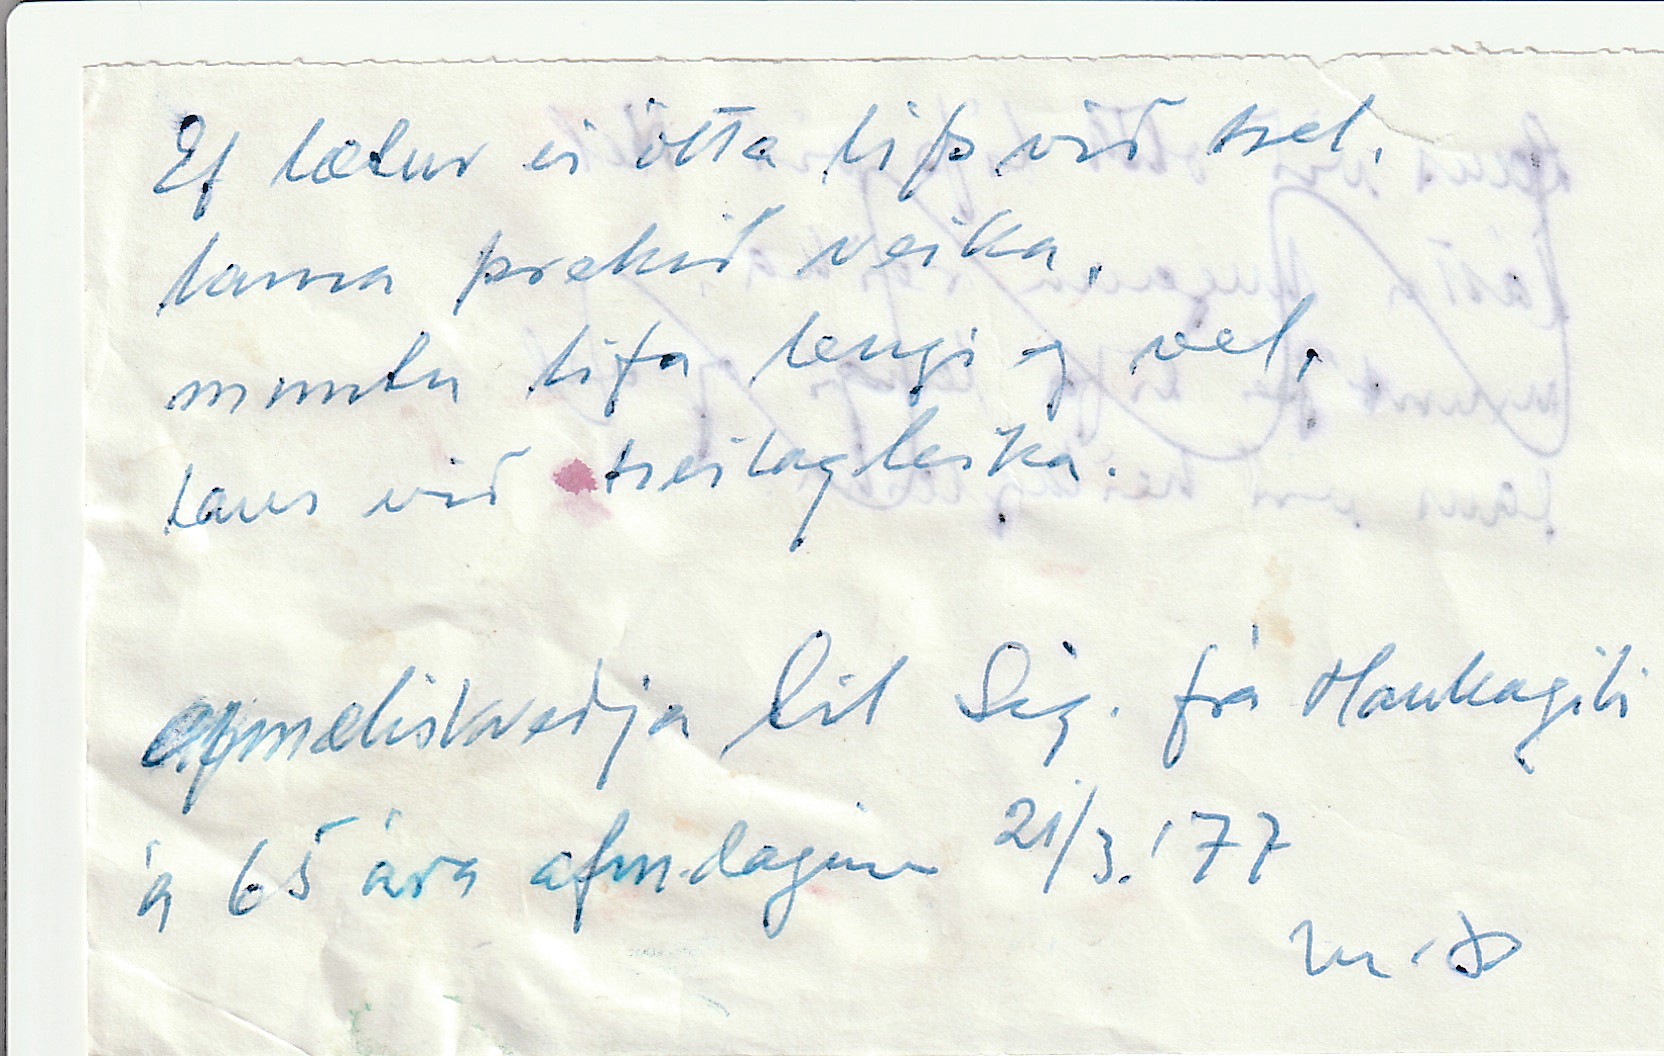 Ef lætur ei ótta lífs við hel,
lama þrekið veika,
muntu lifa lengi og vel,
laus við heilagleika.
afmæliskveðja til Sig. frá Haukagili
á 65 ára afm.daginn 21/3. '77